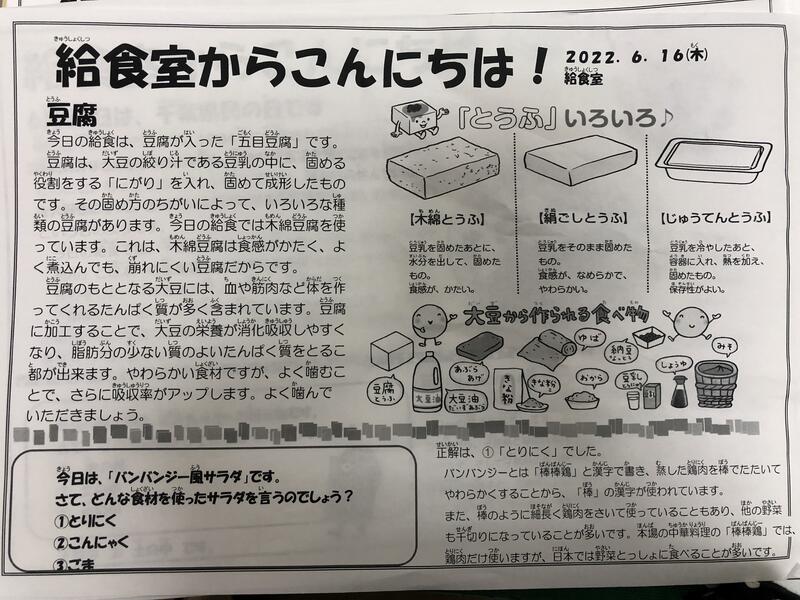 給食室からこんにちは！
2022. 6. 16(木)
給食室
豆腐
今日の給食は、豆腐が入った「五目豆腐」です。
豆腐は、大豆の絞り汁である豆乳の中に、固める
役割をする「にがり」を入れ、固めて成形したもの
です。その固め方のちがいによって、いろいろな種
類の豆腐があります。今日の給食では木綿豆腐を使
っています。これは、木綿豆腐は食感がかたく、よ
く煮込んでも、崩れにくい豆腐だからです。
豆腐のもととなる大豆には、血や筋肉など体を作
ってくれるたんぱく質が多く含まれています。豆腐
に加工することで、大豆の栄養が消化吸収しやすく
なり、脂肪分の少ない質のよいたんぱく質をとるこ
とが出来ます。やわらかい食材ですが、よく噛むこ
とで、さらに吸収率がアップします。よく噛んで
いただきましょう。
「とうふ」いろいろ♪
【木綿とうふ】
豆乳を固めたあとに、
水分を出して、固めた
もの。
食感が、かたい。
【絹ごしとうふ】
豆乳をそのまま固めた
もの。
食感が、なめらかで、
やわらかい。
【じゅうてんとうふ】
豆乳を冷やしたあと、
容器に入れ、熱を加え、
固めたもの。
保存性がよい。
大豆から作られる食べ物
豆腐
大豆油
あぶらあげ
大豆油
きな粉
ゆば
きな粉
納豆
おから
豆乳
しょうゆ
みそ
今日は、「バンバンジー風サラダ」です。
さて、どんな食材を使ったサラダを言うのでしょう？
①とりにく
②こんにゃく
③ごま
正解は、①「とりにく」でした。
バンバンジーとは「棒棒鶏」と漢字で書き、蒸した鶏肉を棒でたたいて
やわらかくすることから、「棒」の漢字が使われています。
また、棒のように細長く鶏肉をさいて使っていることもあり、他の野菜
も千切りになっていることが多いです。本場の中華料理の「棒棒鶏」では、
鶏肉だけ使いますが、日本では野菜とっしょに食べることが多いです。